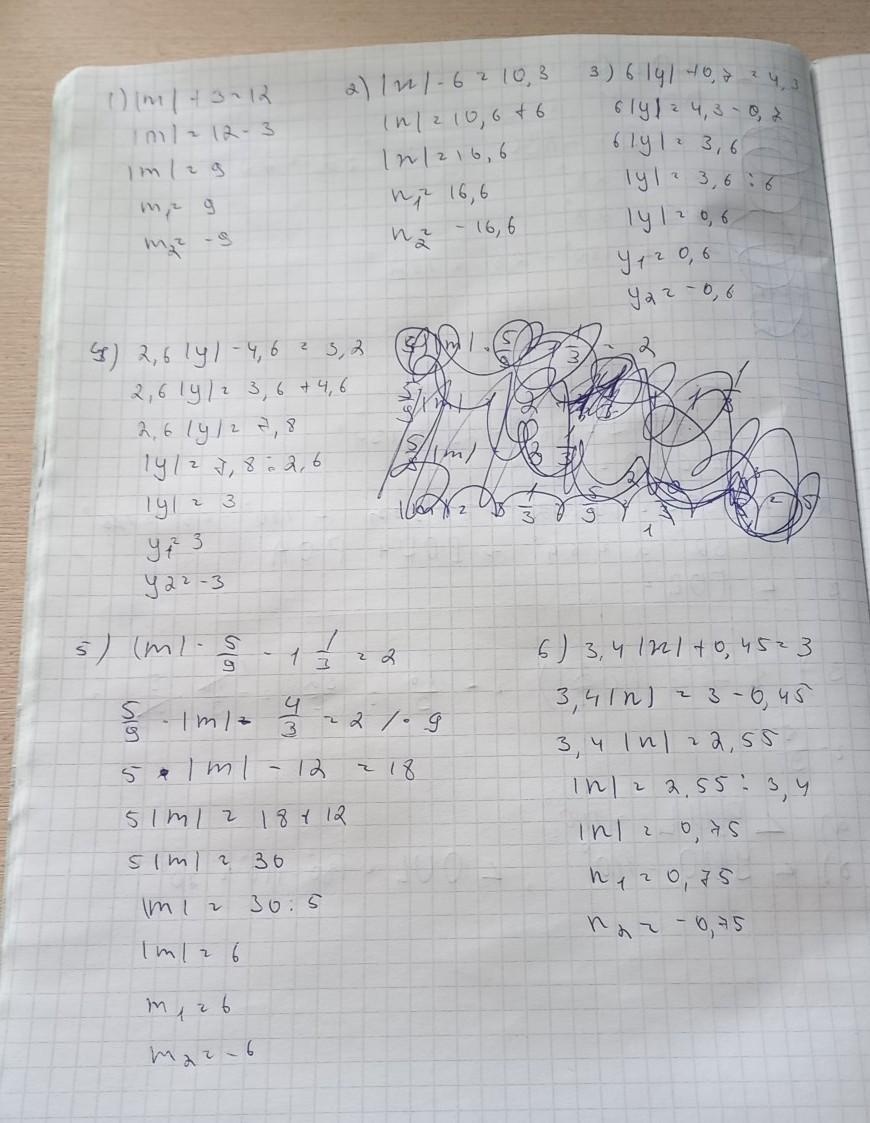 1) |m| + 3 = 12
|m| = 12 - 3
|m| = 9
m₁ = 9
m₂ = -9
2) |n| - 6 = 10,3
|n| = 10,6 + 6
|n| = 16,6
n₁ = 16,6
n₂ = -16,6
3) 6|y| + 0,7 = 4,3
6|y| = 4,3 - 0,7
6|y| = 3,6
|y| = 3,6 : 6
|y| = 0,6
y₁ = 0,6
y₂ = -0,6
4) 2,6|y| - 4,6 = 3,2
2,6|y| = 3,6 + 4,6
2,6|y| = 7,8
|y| = 7,8 : 2,6
|y| = 3
y₁ = 3
y₂ = -3
5) |m| · 5/9 - 1 1/3 = 2
5/9 · |m| - 4/3 = 2 / · 9
5 · |m| - 12 = 18
5|m| = 18 + 12
5|m| = 30
|m| = 30 : 5
|m| = 6
m₁ = 6
m₂ = -6
6) 3,4|n| + 0,45 = 3
3,4|n| = 3 - 0,45
3,4|n| = 2,55
|n| = 2,55 : 3,4
|n| = 0,75
n₁ = 0,75
n₂ = -0,75